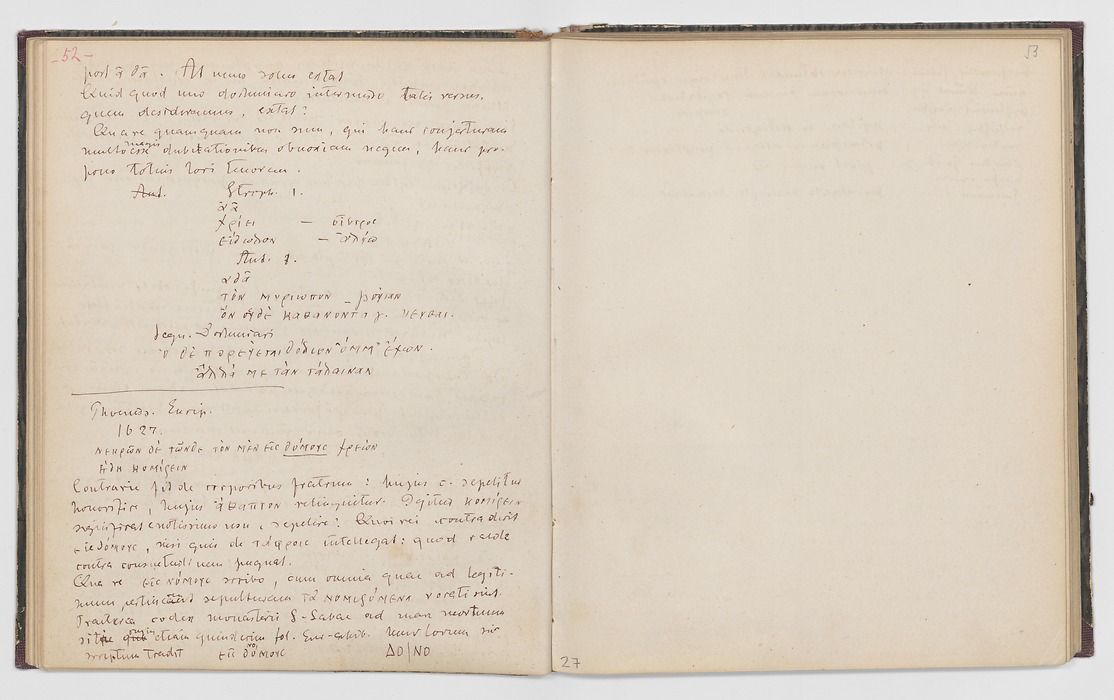 - 52 -
post ἆ δᾶ. At unus solus extat
Quid quod uno dochmiaco intermedio talis versus,
quem desideramus, extat?
Quare quamquam non sum, qui hanc conjecturam
multo magis dubitationibus obnoxiam negem, hanc pro-
pono totius loci tenorem.
Stroph. 1.
ἆ ἆ
χρίει — οἶστρος
εἴδωλον —
Ant. 1.
ἆ δᾶ
τὸν μυριωπὸν —
ὃν οὐδὲ κατθανόντα γ. κεύθει.
Sequ. Dochmiaci
ὁ δὲ πορεύεται δόλιον ὄμμ' ἔχων.
ἀλλά με τὰν τάλαιναν
Phoeniss. Eurip.
1627.
νεκρῶν δὲ τῶνδε τὸν μὲν εἰς δόμους χρεών
ἤδη κομίζειν
Contraria fit de corporibus fratrum: hujus c. sepelitur
honorifice, hujus ἄθαπτον relinquitur. Igitur κομίζειν
significat notissimo usu „sepelire“. Quoi rei contradicit
εἰς δόμους, nisi quis de τάφοις intellegat: quod valde
contra consuetudinem pugnat.
Quare εἰς νόμους scribo, cum omnia quae ad legiti-
mam sepulturam τὰ νομιζόμενα vocati sint.
Praeterea codex monasterii S. Sabae ad mare mortuum
siti
scriptum tradit εἰς δόμους ΔΟ|ΝΟ
53
27